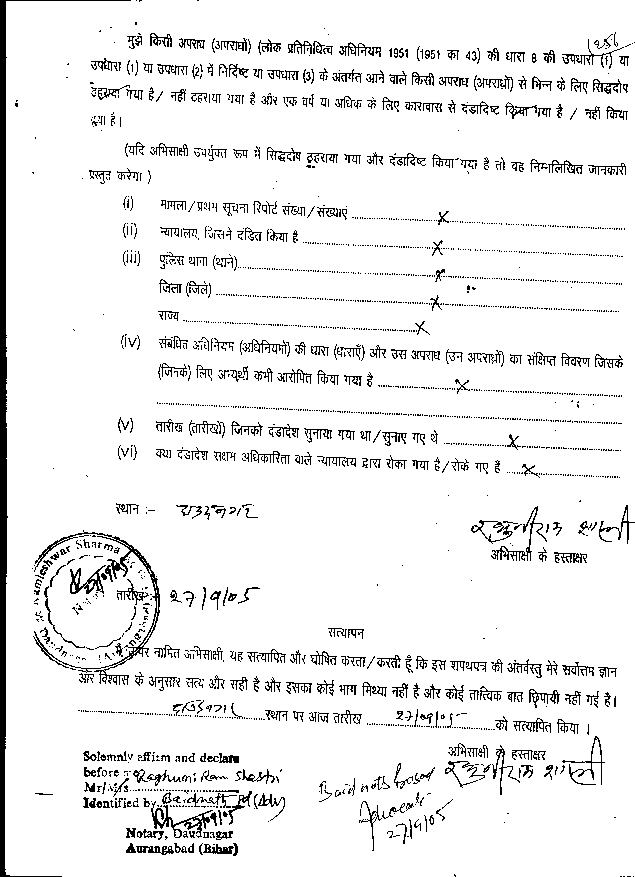 256
मुझे किसी अपराध (अपराधों) (लोक प्रतिनिधित्व अधिनियम 1951 (1951 का 43) की धारा 8 की उपधारा (1) या
उपधारा (1) या उपधारा (2) में निर्दिष्ट या उपधारा (3) के अंतर्गत आने वाले किसी अपराध (अपराधों) से भिन्न के लिए सिद्धदोष
ठहराया गया है / नहीं ठहराया गया है और एक वर्ष या अधिक के लिए कारावास से दंडादिष्ट किया गया है / नहीं किया
गया है।
(यदि अभिसाक्षी उपर्युक्त रूप में सिद्धदोष ठहराया गया और दंडादिष्ट किया गया है तो वह निम्नलिखित जानकारी
प्रस्तुत करेगा )
(i) मामला/प्रथम सूचना रिपोर्ट संख्या/संख्याएं X
(ii) न्यायालय, जिसने दंडित किया है X
(iii) पुलिस थाना (थाने) X
जिला (जिले) X
राज्य X
(iv) संबंधित अधिनियम (अधिनियमों) की धारा (धाराएँ) और उस अपराध (उन अपराधों) का संक्षिप्त विवरण जिसके
(जिनके) लिए अभ्यर्थी कभी आरोपित किया गया है X
(v) तारीख (तारीखों) जिनको दंडादेश सुनाया गया था/सुनाए गए थे X
(vi) क्या दंडादेश सक्षम अधिकारिता वाले न्यायालय द्वारा रोका गया है/रोके गए हैं X
स्थान :- दाउदनगर
रघुनीराम शास्त्री
अभिसाक्षी के हस्ताक्षर
Kamleshwar Sharma
27/09/05
तारीख :- 27/9/05
सत्यापन
ऊपर नामित अभिसाक्षी, यह सत्यापित और घोषित करता/करती हूँ कि इस शपथपत्र की अंतर्वस्तु मेरे सर्वोत्तम ज्ञान
और विश्वास के अनुसार सत्य और सही है और इसका कोई भाग मिथ्या नहीं है और कोई तात्विक बात छिपायी नहीं गई है।
दाउदनगर स्थान पर आज तारीख 27/09/05 को सत्यापित किया ।
अभिसाक्षी के हस्ताक्षर
रघुनीराम शास्त्री
Solemnly affirm and declare
before Raghuni Ram Shastri
Mr/M/s
Identified by Baidnath (Adv)
27/09/05
Notary, Daudnagar
Aurangabad (Bihar)
Advocate
27/9/05